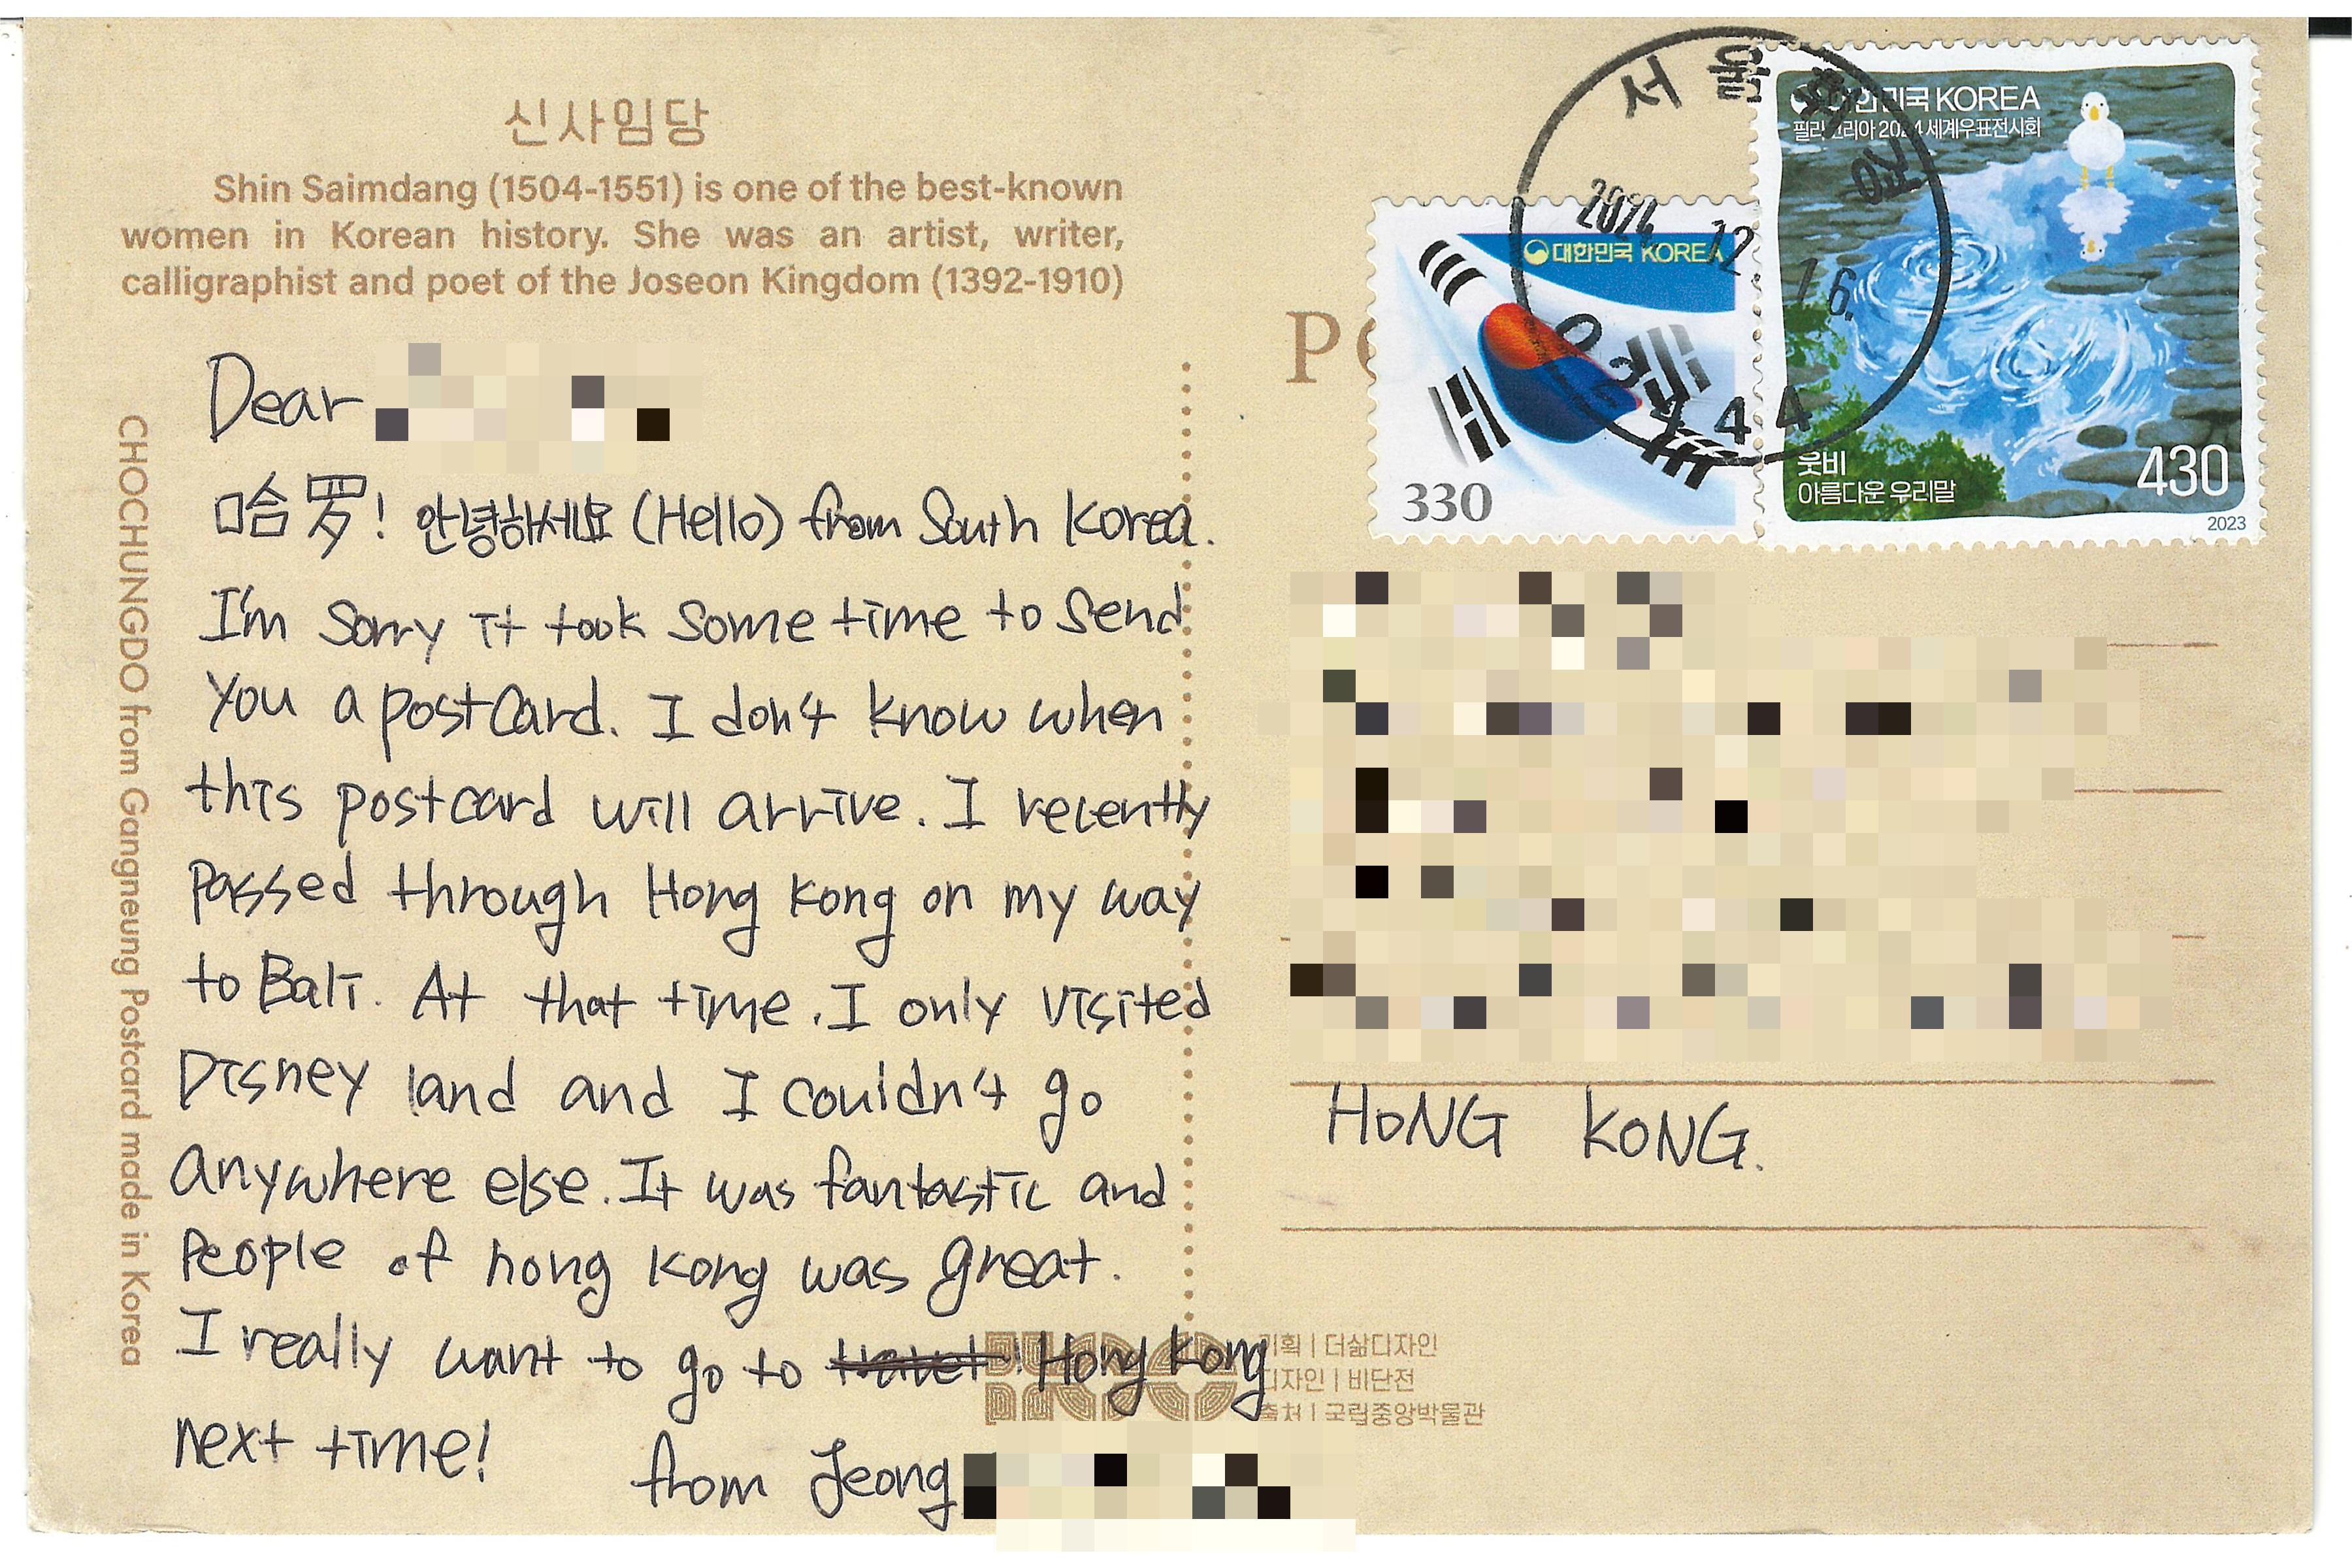 신사임당
Shin Saimdang (1504-1551) is one of the best-known
women in Korean history. She was an artist, writer,
calligraphist and poet of the Joseon Kingdom (1392-1910)
CHOCHUNGDO from Gangneung Postcard made in Korea
Dear
哈罗! 안녕하세요 (Hello) from South Korea.
I'm sorry it took some time to send
you a postcard. I don't know when
this postcard will arrive. I recently
passed through Hong Kong on my way
to Bali. At that time. I only visited
Disney land and I couldn't go
anywhere else. It was fantastic and
People of hong kong was great.
I really want to go to travel Hong Kong
next time!
from Jeong
대한민국 KOREA
330
대한민국 KOREA
필라코리아 2024 세계우표전시회
웃비
아름다운 우리말
430
2023
서울
2024 12. 16.
HONG KONG.
기획 | 더삶디자인
디자인 | 비단전
출처 | 국립중앙박물관